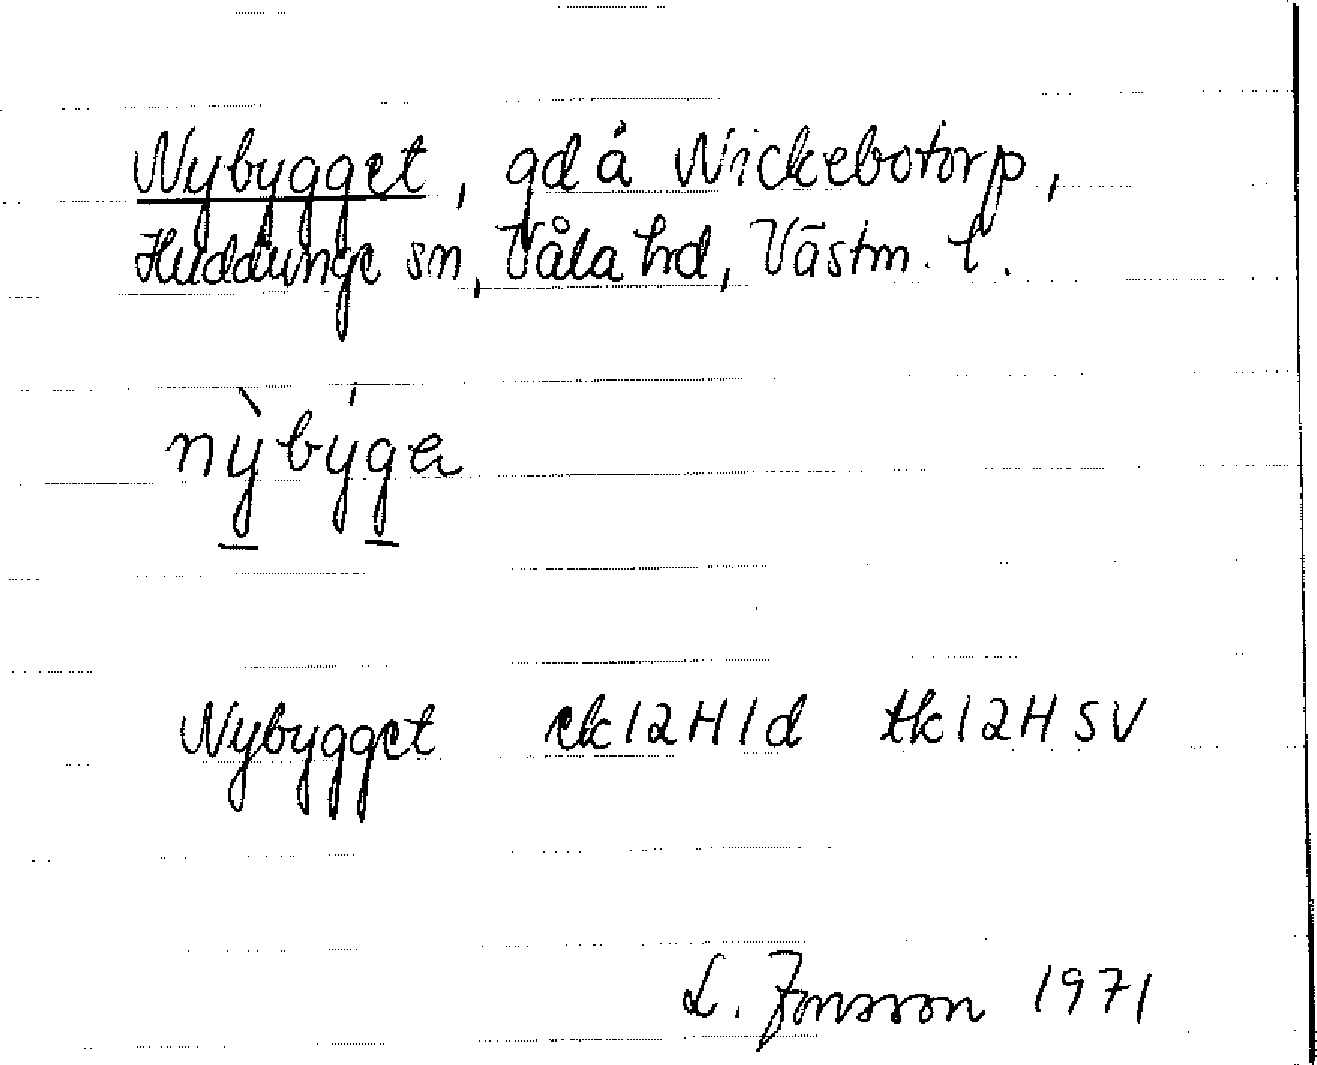 Nybygget, gd å Nickebotorp,
Huddunge sn, Våla hd, Västm. l.
nỳbýga
Nybygget ek 12H1d tk 12H SV
L. Jonsson 1971